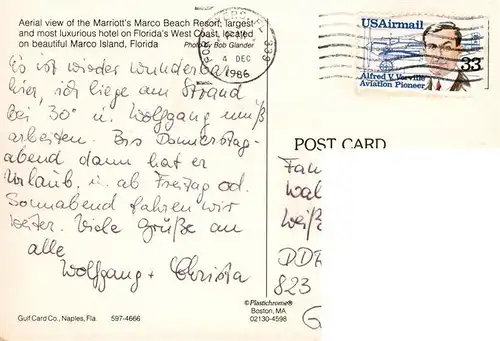 Aerial view of the Marriott's Marco Beach Resort, largest
and most luxurious hotel on Florida's West Coast, located
on beautiful Marco Island, Florida
Photo by Bob Glander
4 DEC
1986
339
USAirmail
Alfred V. Verville
Aviation Pioneer
33
Es ist wieder wunderbar
hier, ich liege am Strand
bei 30° u. Wolfgang muß
arbeiten. Bis Donnerstag-
abend dann hat er
Urlaub. u. ab Freitag od.
Sonnabend fahren wir
weiter. Viele Grüße an
alle
Wolfgang + Christa
POST CARD
Fam
Wal
Weiß
DDR
823
G
©Plastichrome®
Boston, MA
02130-4598
Gulf Card Co., Naples, Fla. 597-4666